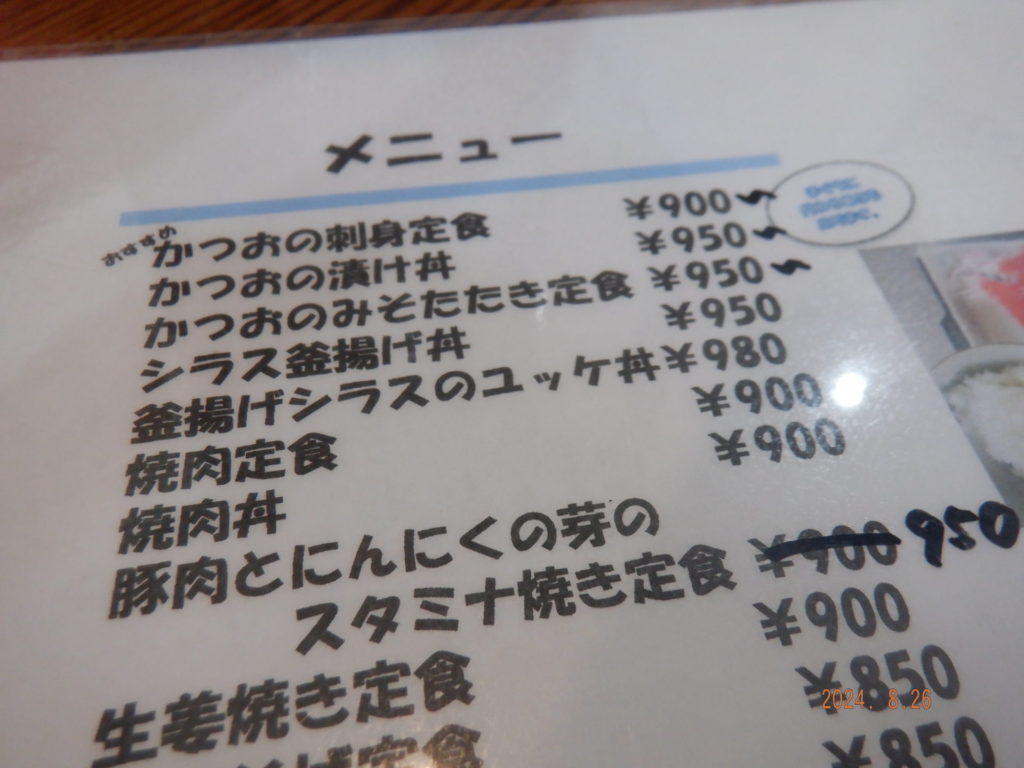 メニュー
おすすめ
かつおの刺身定食 ¥900~
かつおの漬け丼 ¥950~
かつおのみそたたき定食 ¥950~
シラス釜揚げ丼 ¥950
釜揚げシラスのユッケ丼 ¥980
焼肉定食 ¥900
焼肉丼 ¥900
豚肉とにんにくの芽の
スタミナ焼き定食 ¥900 950
生姜焼き定食 ¥900
げ定食 ¥850
¥850
2024. 8.26